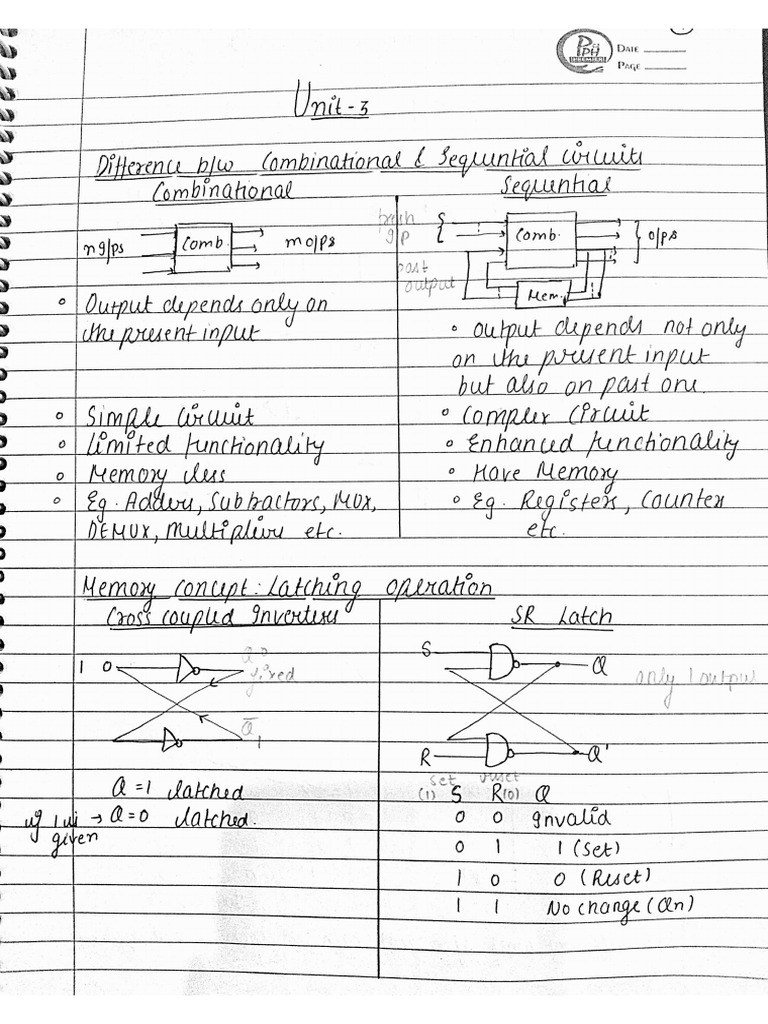 PPH
DATE
PAGE
Unit-3
Difference b/w Combinational & Sequential Circuits
Combinational
Sequential
n I/Ps
Comb.
m O/Ps
presh
I/P
S
Comb.
O/Ps
past
output
Mem.
Output depends only on
the present input
Output depends not only
on the present input
but also on past one.
Simple Circuit
Limited functionality
Memory less
Eg. Adders, Subtractors, MUX,
DEMUX, Multipliers etc.
Complex Circuit
Enhanced functionality
Have Memory
Eg. Registers, Counter
etc.
Memory Concept: Latching operation
Cross Coupled Inverters
1 0
Q 0
fixed
Q̅ 1
Q = 1 latched
if 1 is → Q = 0 latched.
given
SR Latch
S
Q
only 1 output
R
Q'
set reset
(1) S R(0) Q
0 0 Invalid
0 1 1 (Set)
1 0 0 (Reset)
1 1 No change (Qn)